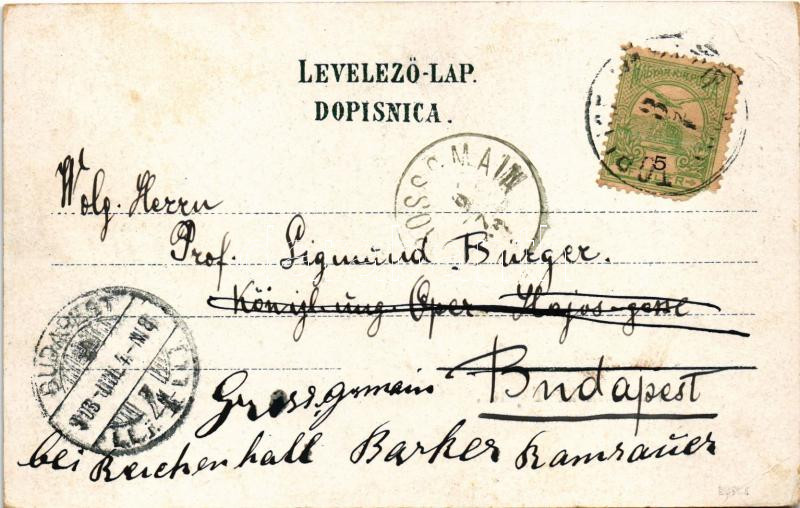 LEVELEZŐ-LAP.
DOPISNICA.
MAGYAR KIR. POSTA
5
GROSSGMAIN
Wolg. Herrn
Prof. Sigmund Bürger.
Königl. ung. Oper Hajos-gasse
Budapest
Grossgmain
bei Reichenhall Barker Ramsauer
BUDAPEST